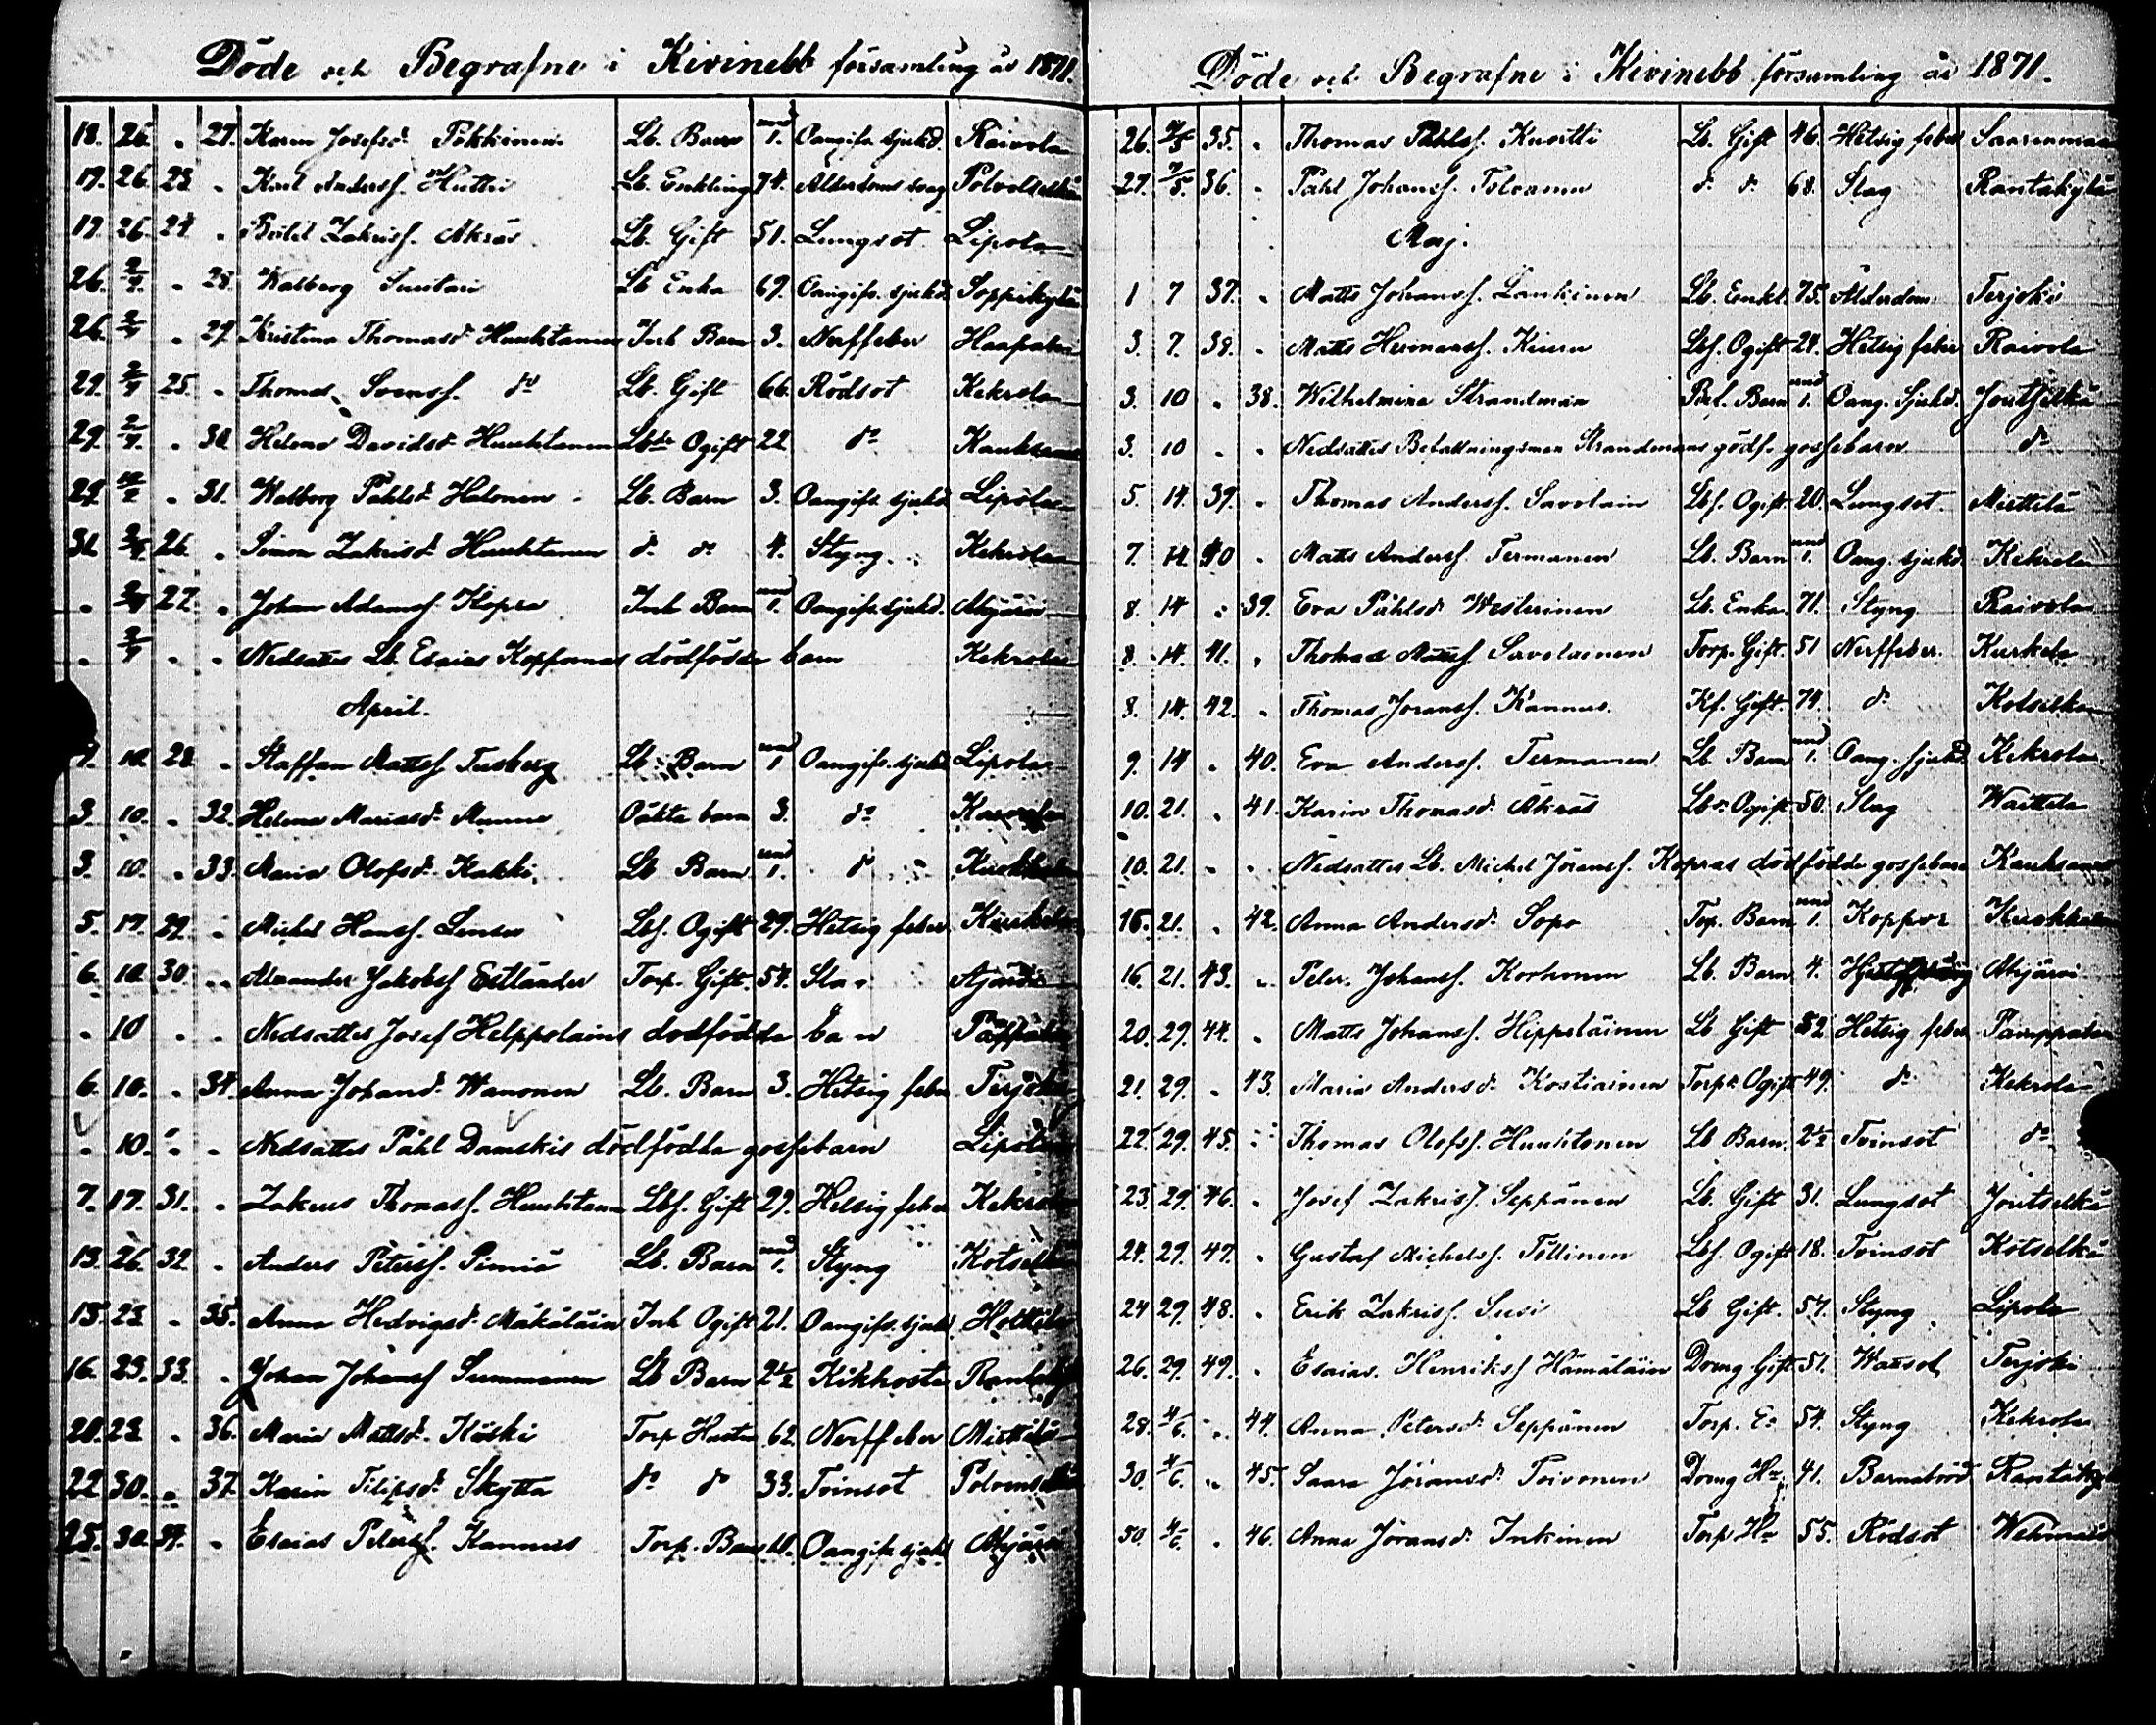 Döde och Begrafne i Kivinebb församling år 1871.
18. 26. " 27. Karin Josefsd. Pökkinen Lb. Barn und 1. Oangifn sjukd. Raivola
19. 26. 23. " Karl Anderss. Hutti Lb. Enkling 74. Alderdoms svag Polvolselkä
19. 26. 24. " Zakriss. Akräs Lb. Gift 51. Lungsot Lipola
26. 2/4. " 28. Walberg Suutari Lb Enka 69. Oangifn. sjukd. Soppikylä
26. 2/4 " 29. Kristina Thomasd. Huuhtanen Inh Barn 3. Nerffeber Haapala
29. 2/4 25. " Thomas Svenss. do Lb. Gift 66. Rödsot Kekrola
29. 2/4. " 30. Helena Davidsd. Huuhtanen Ogift 22 do Kauksamo
29. " 31. Walborg Påhlsd. Halonen Lb. Barn 3. Oangifn sjukd. Lipola
31. 2/4 26. " Simon Zakrisd. Huuhtanen do do 4. Styng Kekrola
" 2/4 27. " Johan Adamss. Kopra Inh Barn und 1. Oangifn. sjukd. Ahjärvi
" 2/4 " " Nedsattes Lb. Esaias dödfödde barn Kekrola
April.
10. 28. " Staffan Mattss. Tusberg Lb. Barn und 1 Oangifn. sjukd. Lipola
3. 10. " 32. Helena Mariasd. Oäkta barn 3. do
3. 10. " 33. Maria Olofsd. Kakki Lb Barn und 1. do Kuokkala
5. 17. 29. " Michel Hanss. Lbs. Ogift 29. Hetsig feber Kurkela
6. 10. 30. " Alexander Jakobss Estlander Torp. Gift. 54.
" 10 " " Nedsattes Josef Helppolains dodfödda barn
6. 10. " 34. Anna Johansd. Wanonen Lb. Barn 3. Hetsig feber Terjoki
" 10. " " Nedsattes Påhl Damskis dödfödda gossebarn Lipola
7. 17. 31. " Zakeus Thomass. Huuhtanen Lbs. Gift 29. Hetsig feber Kekrola
13. 26. 32. " Anders Peterss. Pimiä Lb. Barn und 1. Styng Kotselkä
13. 23 " 35. Anna Hedvigsd. Mäkäläin Inh Ogift 21. Oangifn. sjukd. Hottila
16. 23. 33. " Johan Johanss Summanen Lb Barn 2½ Kikhosta
20. 23 " 36. Maria Mattsd. Koski Torp Hustru 62. Nerffeber Miettilä
22 30. " 37. Karin Filipsd. Skyttä do do 33. Tvinsot
25. 30. 34. " Esaias Peterss. Kannus Torp. Barn Oangifn sjukd Ahjärvi
Döde och Begrafne i Kivinebb församling år 1871.
26. 7/5 35. " Thomas Påhlss. Kuortti Lb. Gift 46. Hetsig feber Saarenmaa
27. 7/5. 36. " Påhl Johanss. Tolvanen do do 68. Slag Rantakylä
Maj.
1 7 37. " Matts Johanss. Lankinen Lb. Enkl. 75. Ålderdom Terjoki
3. 7. 38. " Matts Hermanss. Kiuru Lbs. Ogift 24. Hetsig feber Raivola
3. 10 " 38. Wilhelmina Strandman Barn und 1. Oang. Sjukd. Joutselkä
3. 10 " " Nedsattes Befallningsman Strandmans gossebarn do
5. 14. 39. " Thomas Anderss. Savolain Lbs. Ogift. 20. Lungsot. Miettilä
7. 14. 40 " Matts Anderss. Termanen Lb. Barn und 1. Oang. sjukd. Kekrola
8. 14 " 39. Eva Påhlsd. Westerinen Lb. Enka. 71. Styng Raivola
8. 14. 41. " Thomas Mattss. Savolainen Torp. Gift. 51 Nerffeber. Kurkela
8. 14. 42. " Thomas Joranss. Kannus. Gift. 74. do Kotselkä
9. 14 " 40. Eva Anderss. Termanen Lb. Barn und 1. Oang. sjukd. Kekrola
10. 21. " 41. Karin Thomasd. Äkräs Ogift 50. Slag Waittela
10. 21. " " Nedsattes Lb. Michel Jöranss. Kopras dödfödde gossebarn Kauksamo
15. 21. " 42. Anna Andersd. Sopo Torp. Barn und 1. Koppor Kuokkala
16. 21. 43. " Peter Johanss. Korhonen Lb. Barn 4. Ahjärvi
20. 29. 44. " Matts Johanss. Hippeläinen Lb Gift 52 Hetsig feber Pamppala
21. 29. " 43. Maria Andersd. Kostiainen Ogift 49. do Kekrola
22. 29. 45. " Thomas Olofss. Huuhtonen Lb Barn. 2½ Tvinsot do
23. 29. 46. " Josef Zakriss. Seppänen Lb. Gift 31. Lungsot Joutselkä
24. 29. 47. " Gustaf Michelss. Töllinen Lbs. Ogift 18. Tvinsot Kotselkä
24 29. 48. " Erik Zakriss. Susi Lb Gift. 57. Styng Lipola
26. 29. 49. " Esaias. Henrikss Hämäläin Domg Gift. 51. Wattsot Terjoki
28. 4/6. " 44. Anna Petersd. Seppänen Torp. Ea 54. Styng Kekrola
30. 4/6. " 45. Saara Jöransd. Toivonen Domg Hu 41. Barnsbörd Rantakylä
30. 4/6. " 46. Anna Jöransd. Inkinen Torp Hu 55. Rödsot Wehmais